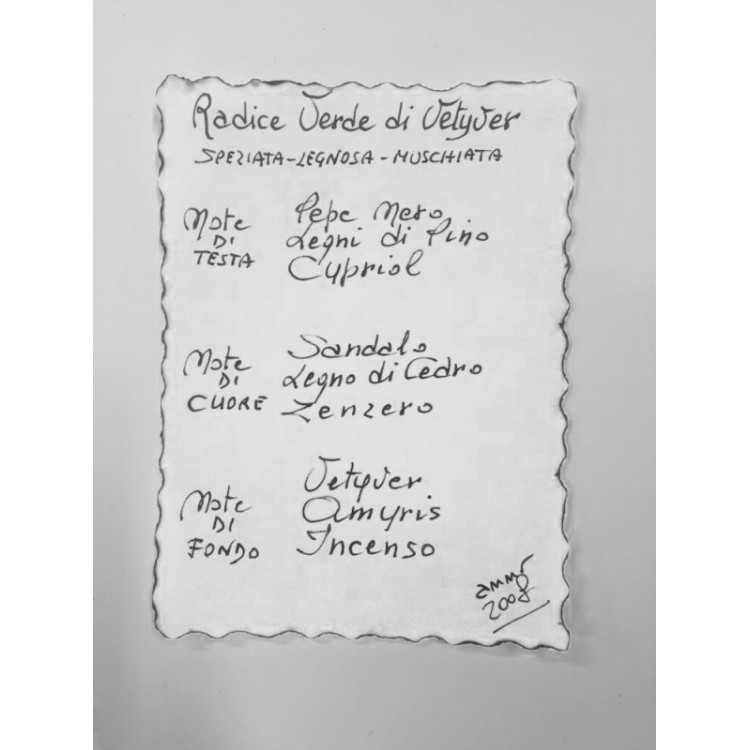 Radice Verde di Vetyver
SPEZIATA-LEGNOSA-MUSCHIATA
Note DI TESTA
Pepe Nero
Legni di Pino
Cypriol
Note DI CUORE
Sandalo
Legno di Cedro
Zenzero
Note DI FONDO
Vetyver
Amyris
Incenso
2008